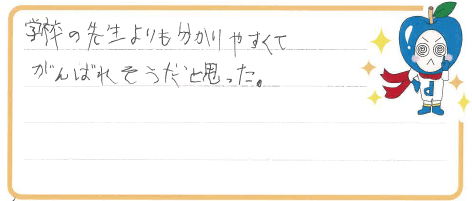 学校の先生よりも分かりやすくて
がんばれそうだと思った。